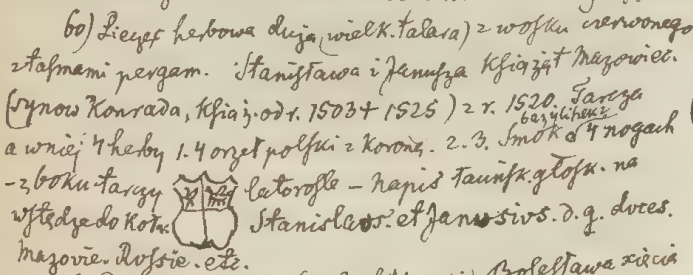 60) Pieczęć herbowa duża (wielk. talara) z wosku czerwonego
z taśmami pergam. Stanisława i Janusza Książąt Mazowiec.
(synow Konrada, Książ. od r. 1503 + 1525) z r. 1520. Tarcza
bazyliszek
a w niej 4 herby 1. 4 orzeł polski z Koroną. 2. 3. Smok o 4 nogach
- z boku tarczy latorośle - napis łacińsk. głosk. na
wstędze do koła: Stanislaus. et Janusius. d. g. duces.
Mazovie. Russie. etc.
Bolesława xięcia